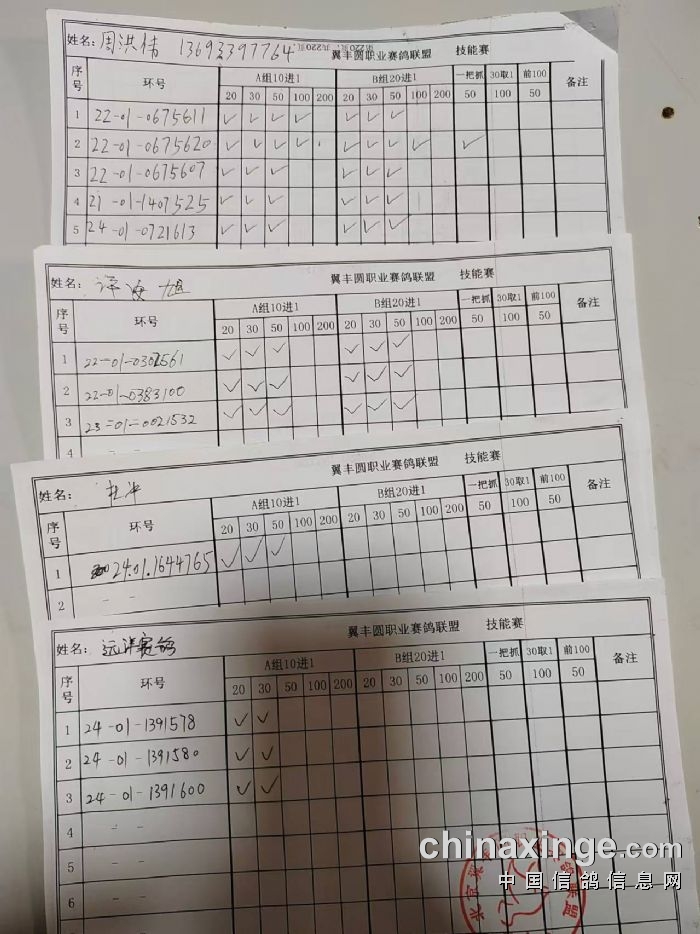 第220页, 共220页
姓名: 周洪伟 13693397764 翼丰圆职业赛鸽联盟 技能赛
序号 环号 A组10进1 B组20进1 一把抓 30取1 前100 备注
20 30 50 100 200 20 30 50 100 200 50 100 50
1 22-01-0675611 ✓ ✓ ✓ ✓ ✓ ✓ ✓
2 22-01-0675620 ✓ ✓ ✓ ✓ ✓ ✓ ✓ ✓ ✓
3 22-01-0675607 ✓ ✓ ✓ ✓ ✓ ✓
4 21-01-1407525 ✓ ✓ ✓ ✓ ✓ ✓
5 24-01-0721613 ✓ ✓ ✓ ✓ ✓ ✓
翼丰圆职业赛鸽联盟 技能赛
姓名: 海旭
序号 环号 A组10进1 B组20进1 一把抓 30取1 前100 备注
20 30 50 100 200 20 30 50 100 200 50 100 50
1 ✓ ✓ ✓ ✓ ✓ ✓
2 22-01-0383100 ✓ ✓ ✓ ✓ ✓ ✓
3 23-01-0021532 ✓ ✓ ✓ ✓ ✓ ✓
4
翼丰圆职业赛鸽联盟 技能赛
姓名:
序号 环号 A组10进1 B组20进1 一把抓 30取1 前100 备注
20 30 50 100 200 20 30 50 100 200 50 100 50
1 24.01.1644765 ✓ ✓ ✓
2 - -
翼丰圆职业赛鸽联盟 技能赛
姓名: 远洋赛鸽
序号 环号 A组10进1 B组20进1 一把抓 30取1 前100 备注
20 30 50 100 200 20 30 50 100 200 50 100 50
1 24-01-1391578 ✓ ✓
2 24-01-1391580 ✓ ✓
3 24-01-1391600 ✓ ✓
4 - -
5 - -
6 - -
7 - -
8 - -
chinaxinge.com
中国信鸽信息网